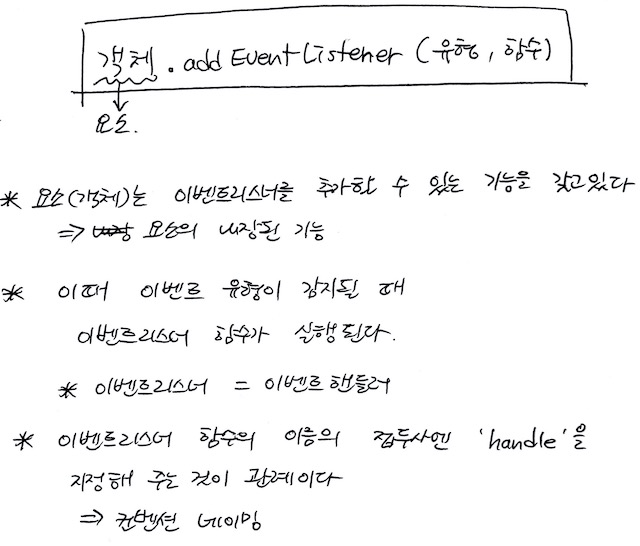 객체.addEventListener (유형, 함수)
요소.
* 요소(객체)는 이벤트리스너를 추가할 수 있는 기능을 갖고있다
⇒ 내장 요소의 내장된 기능
* 이때 이벤트 유형이 감지될 때
이벤트리스너 함수가 실행된다.
* 이벤트리스너 = 이벤트핸들러
* 이벤트리스너 함수의 이름의 접두사엔 'handle'을
지정해 주는 것이 관례이다
⇒ 컨벤션 네이밍